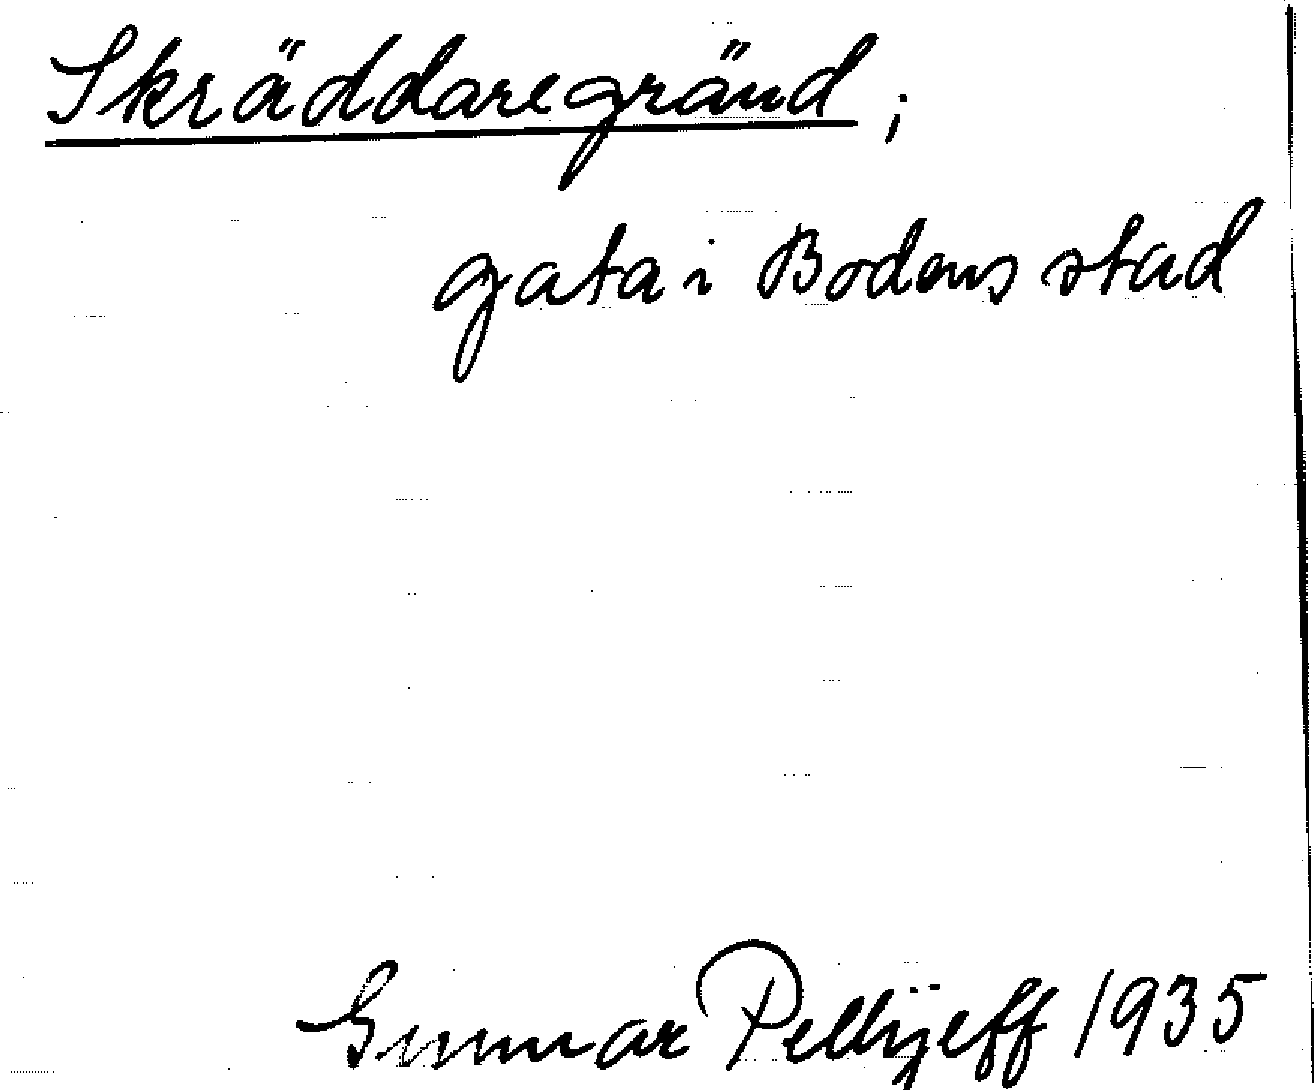 Skräddaregränd ;
gata i Bodens stad
Gunnar Pellijeff 1935